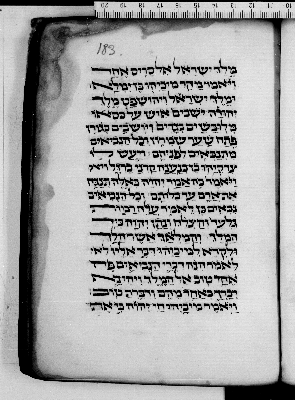 מלך ישראל אל סריס אחד
ויאמר מהר מיכיהו בן ימלא
ומלך ישראל ויהושפט מלך
יהודה יושבים איש על כסאו
מלבשים בגדים וישבים בגורן
פתח שער שמרון וכל הנביאים
מתנבאים לפניהם ויעש לו
צדקיהו בן כנענה קרני ברזל
ויאמר כה אמר יהוה באלה תנגח
את ארם עד כלותם וכל הנביאים
נבאים כן לאמר עלה רמת
גלעד והצלח ונתן יהוה ביד
המלך והמלאך אשר הלך
לקרא למיכיהו דבר אליו
לאמר הנה דברי הנביאים פה
אחד טוב אל המלך ויהי נא
דברך כאחד מהם ודברת טוב
ויאמר מיכיהו חי יהוה כי את
183.